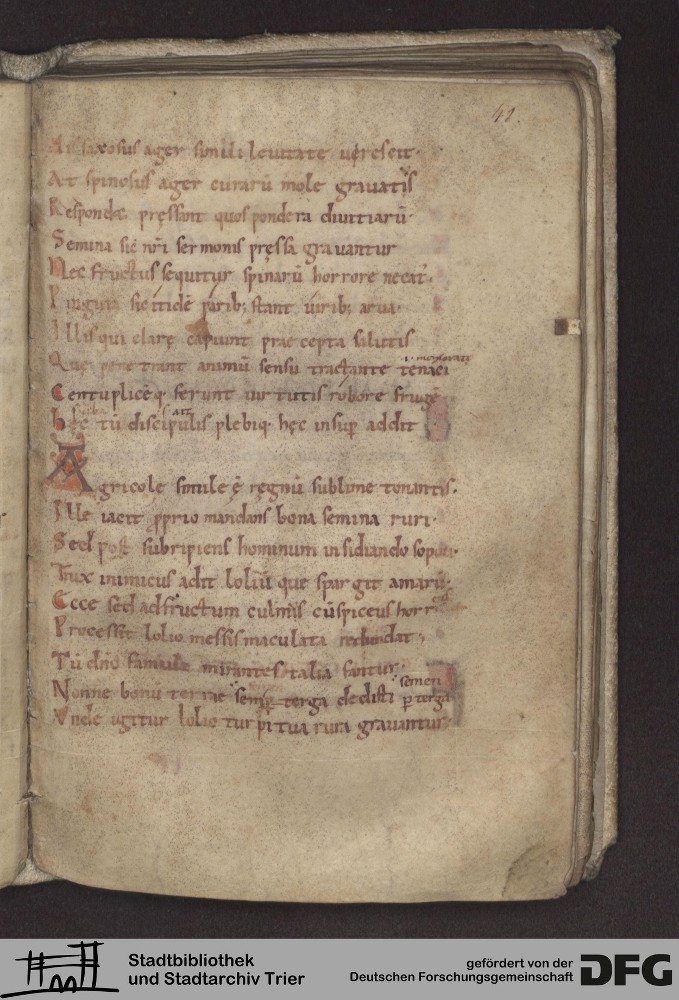 41.
saxosus ager simili levitate
At spinosus ager curarū mole gravatis
Respondet pręssant quos pondera divitiarū·
Semina sic nr̄i sermonis pręssa gravantur
Nec fructus sequitur spinarū horrore necat·
Pinguia sic itidē parib; stant virib; arva·
Illis qui clarę capiunt praecepta salutis
memorari
Quę penetrant animū sensu tractante tenaci
Centuplicēq· ferunt virtutis robore frugē
turba
hęc tū discipulis plebiq· hęc insup̄ addit
Agricole simile ē ręgnū sublime tonantis·
Ille iacit p̄prio mandans bona semina ruri·
Sed post subripiens hominum insidiando
Trux inimicus adit loliū que spargit amarū·
Ecce sed ad fructum culmis cū spiceus
Processit lolio messis maculata redundat·
Tū dn̄o famulę mirantes talia fantur·
semen
Nonne bonū terrae semp̄ terga dedisti p̄ terga
Vnde ugitur lolio turpi tua rura gravantur·
Stadtbibliothek
und Stadtarchiv Trier
gefördert von der
Deutschen Forschungsgemeinschaft
DFG